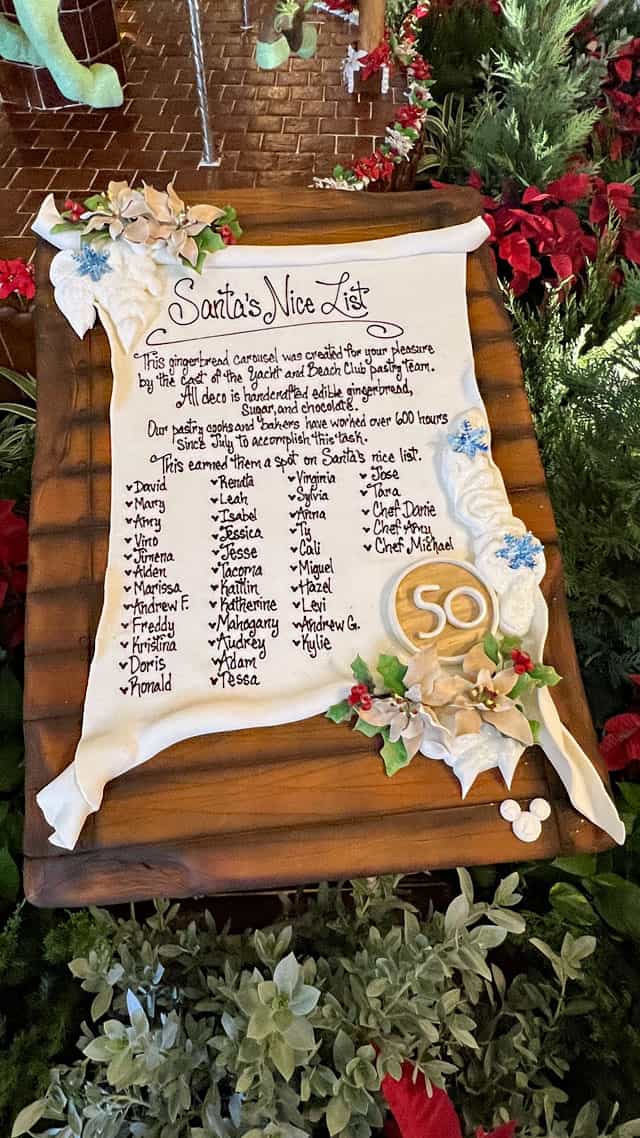 Santa's Nice List
This gingerbread carousel was created for your pleasure
by the cast of the Yacht and Beach Club pastry team.
All deco is handcrafted edible gingerbread,
sugar, and chocolate.
Our pastry cooks and bakers have worked over 600 hours
since July to accomplish this task.
This earned them a spot on Santa's nice list.
David
Mary
Amy
Vino
Jimena
Aiden
Marissa
Andrew F.
Freddy
Kristina
Doris
Ronald
Renata
Leah
Isabel
Jessica
Jesse
Tacoma
Kaitlin
Katherine
Mahogany
Audrey
Adam
Tessa
Virginia
Sylvia
Anna
Ty
Cali
Miguel
Hazel
Levi
Andrew G.
Kylie
Jose
Tara
Chef Danie
Chef Amy
Chef Michael
50